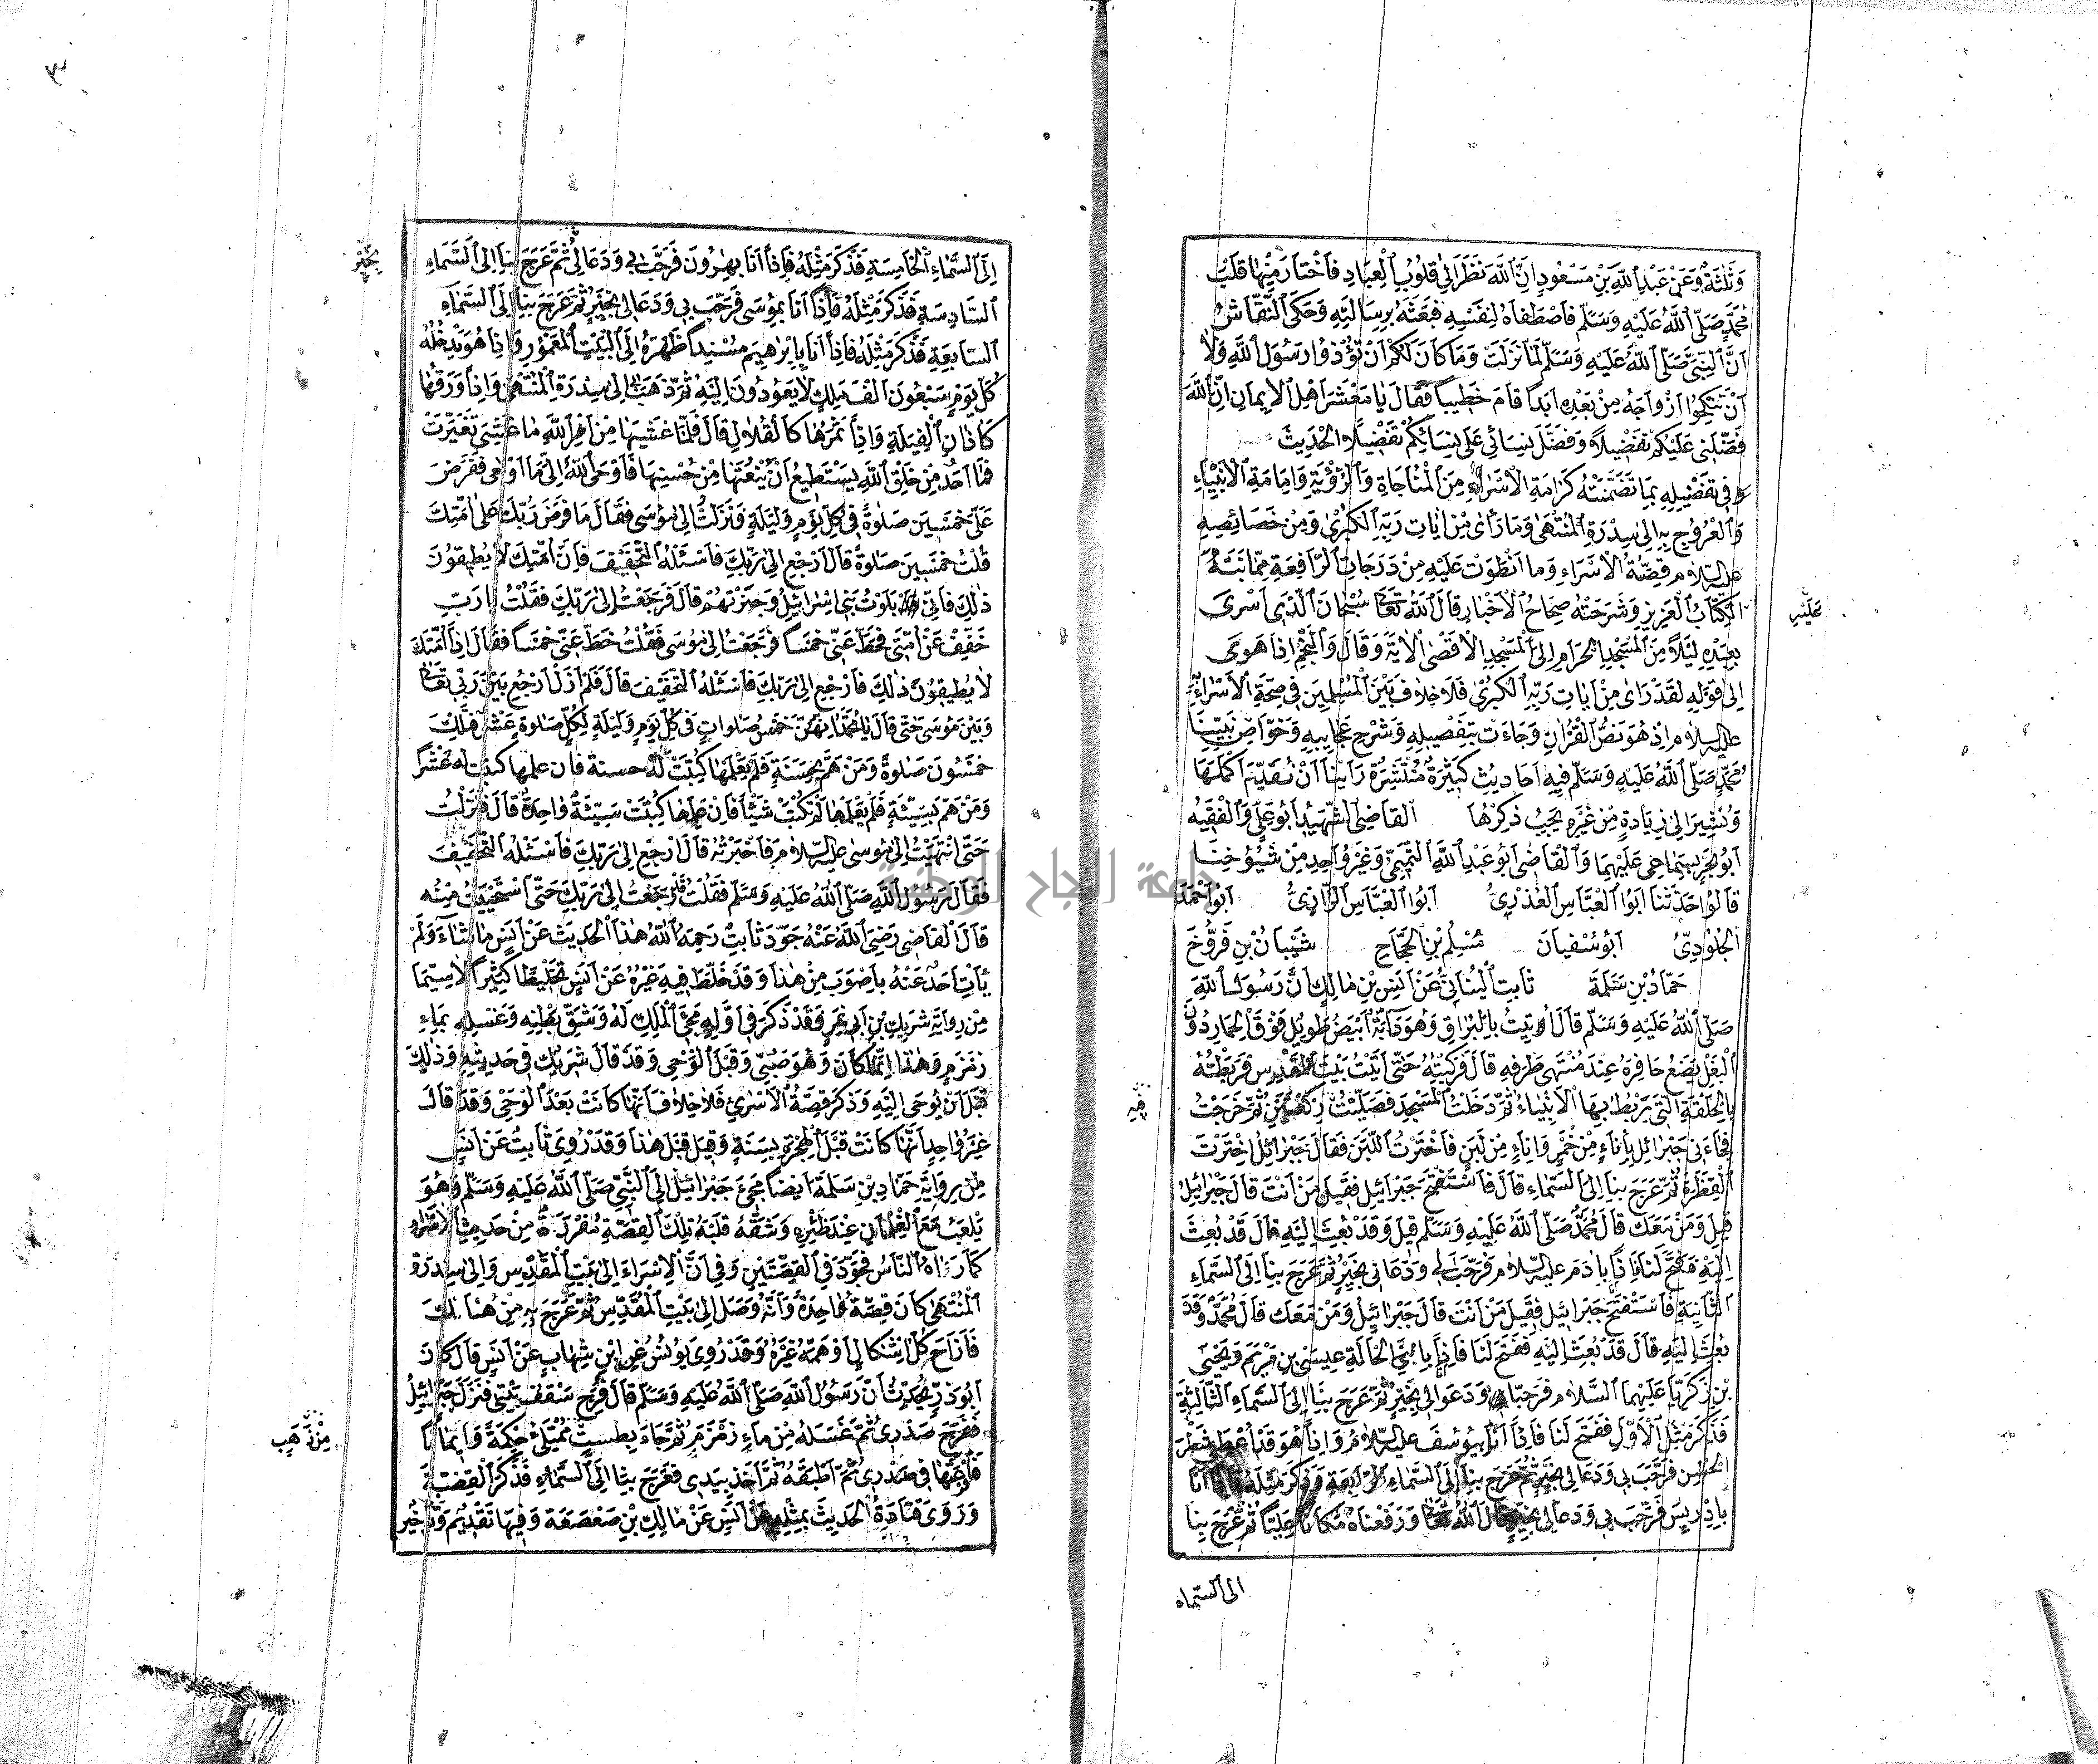 وَثَلٰثَةٌ وَعَنْ عَبْدِ اللّٰهِ بْنِ مَسْعُودٍ اِنَّ اللّٰهَ نَظَرَ اِلٰى قُلُوبِ الْعِبَادِ فَاخْتَارَ مِنْهَا قَلْبَ
مُحَمَّدٍ صَلَّى اللّٰهُ عَلَيْهِ وَسَلَّمَ فَاصْطَفَاهُ لِنَفْسِهِ فَبَعَثَهُ بِرِسَالَتِهِ وَحَكَى النَّقَّاشُ
اَنَّ النَّبِيَّ صَلَّى اللّٰهُ عَلَيْهِ وَسَلَّمَ لَمَّا نَزَلَتْ وَمَا كَانَ لَكُمْ اَنْ تُؤْذُوا رَسُولَ اللّٰهِ وَلَا
اَنْ تَنْكِحُوا اَزْوَاجَهُ مِنْ بَعْدِهِ اَبَدًا قَامَ خَطِيبًا فَقَالَ يَا مَعْشَرَ اَهْلِ الْاِيمَانِ اِنَّ اللّٰهَ
فَضَّلَنِي عَلَيْكُمْ تَفْضِيلًا وَفَضَّلَ نِسَائِي عَلَى نِسَائِكُمْ تَفْضِيلًا الْحَدِيثَ
فِي تَفْضِيلِهِ بِمَا تَضَمَّنَتْهُ كَرَامَةُ الْاِسْرَاءِ مِنَ الْمُنَاجَاةِ وَالرُّؤْيَةِ وَاِمَامَةِ الْاَنْبِيَاءِ
وَالْعُرُوجِ بِهِ اِلٰى سِدْرَةِ الْمُنْتَهٰى وَمَا رَاٰى مِنْ اٰيَاتِ رَبِّهِ الْكُبْرٰى وَمِنْ خَصَائِصِهِ
عليه السلام قِصَّةُ الْاِسْرَاءِ وَمَا انْطَوَتْ عَلَيْهِ مِنْ دَرَجَاتِ الرِّفْعَةِ مِمَّا نَبَّهَ
الْكِتَابُ الْعَزِيزُ وَشَرَحَتْهُ صِحَاحُ الْاَخْبَارِ قَالَ اللّٰهُ تَعَالٰى سُبْحَانَ الَّذِي اَسْرٰى
بِعَبْدِهِ لَيْلًا مِنَ الْمَسْجِدِ الْحَرَامِ اِلَى الْمَسْجِدِ الْاَقْصَى الْاٰيَةَ وَقَالَ وَالنَّجْمِ اِذَا هَوٰى
اِلٰى قَوْلِهِ لَقَدْ رَاٰى مِنْ اٰيَاتِ رَبِّهِ الْكُبْرٰى فَلَا خِلَافَ بَيْنَ الْمُسْلِمِينَ فِي صِحَّةِ الْاِسْرَاءِ بِهِ
عليه السلام اِذْ هُوَ نَصُّ الْقُرْاٰنِ وَجَاءَتْ بِتَفْصِيلِهِ وَشَرْحِ عَجَائِبِهِ وَخَوَاصِّ نَبِيِّنَا
مُحَمَّدٍ صَلَّى اللّٰهُ عَلَيْهِ وَسَلَّمَ فِيهِ اَحَادِيثُ كَثِيرَةٌ مُنْتَشِرَةٌ رَاَيْنَا اَنْ نُقَدِّمَ اَكْمَلَهَا
وَنُشِيرَ اِلٰى زِيَادَةٍ مِنْ غَيْرِهِ يَجِبُ ذِكْرُهَا الْقَاضِي الشَّهِيدُ اَبُو عَلِيٍّ وَالْفَقِيهُ
اَبُو بَحْرٍ بِسَمَاعِي عَلَيْهِمَا وَالْقَاضِي اَبُو عَبْدِ اللّٰهِ التَّمِيمِيُّ وَغَيْرُ وَاحِدٍ مِنْ شُيُوخِنَا
قَالُوا حَدَّثَنَا اَبُو الْعَبَّاسِ الْعُذْرِيُّ اَبُو الْعَبَّاسِ الرَّازِيُّ اَبُو اَحْمَدَ
الْجُلُودِيُّ اَبُو سُفْيَانَ مُسْلِمُ بْنُ الْحَجَّاجِ شَيْبَانُ بْنُ فَرُّوخَ
حَمَّادُ بْنُ سَلَمَةَ ثَابِتٌ الْبُنَانِيُّ عَنْ اَنَسِ بْنِ مَالِكٍ اَنَّ رَسُولَ اللّٰهِ
صَلَّى اللّٰهُ عَلَيْهِ وَسَلَّمَ قَالَ اُوتِيتُ بِالْبُرَاقِ وَهُوَ دَابَّةٌ اَبْيَضُ طَوِيلٌ فَوْقَ الْحِمَارِ دُونَ
الْبَغْلِ يَضَعُ حَافِرَهُ عِنْدَ مُنْتَهٰى طَرْفِهِ قَالَ فَرَكِبْتُهُ حَتّٰى اَتَيْتُ بَيْتَ الْمَقْدِسِ فَرَبَطْتُهُ
بِالْحَلْقَةِ الَّتِي يَرْبِطُ بِهَا الْاَنْبِيَاءُ ثُمَّ دَخَلْتُ الْمَسْجِدَ فَصَلَّيْتُ رَكْعَتَيْنِ ثُمَّ خَرَجْتُ
فَجَاءَنِي جَبْرَائِلُ بِاِنَاءٍ مِنْ خَمْرٍ وَاِنَاءٍ مِنْ لَبَنٍ فَاخْتَرْتُ اللَّبَنَ فَقَالَ جَبْرَائِلُ اخْتَرْتَ
الْفِطْرَةَ ثُمَّ عَرَجَ بِنَا اِلَى السَّمَاءِ قَالَ فَاسْتَفْتَحَ جَبْرَائِلُ فَقِيلَ مَنْ اَنْتَ قَالَ جَبْرَائِلُ
قِيلَ وَمَنْ مَعَكَ قَالَ مُحَمَّدٌ صَلَّى اللّٰهُ عَلَيْهِ وَسَلَّمَ قِيلَ وَقَدْ بُعِثَ اِلَيْهِ قَالَ قَدْ بُعِثَ
اِلَيْهِ فَفُتِحَ لَنَا فَاِذَا بِاٰدَمَ عليه السلام فَرَحَّبَ بِي وَدَعَانِي بِخَيْرٍ ثُمَّ عَرَجَ بِنَا اِلَى السَّمَاءِ
الثَّانِيَةِ فَاسْتَفْتَحَ جَبْرَائِلُ فَقِيلَ مَنْ اَنْتَ قَالَ جَبْرَائِلُ وَمَنْ مَعَكَ قَالَ مُحَمَّدٌ وَقَدْ
بُعِثَ اِلَيْهِ قَالَ قَدْ بُعِثَ اِلَيْهِ فَفَتَحَ لَنَا فَاِذَا بِابْنَيِ الْخَالَةِ عِيسَى بْنِ مَرْيَمَ وَيَحْيَى
بْنِ زَكَرِيَّا عَلَيْهِمَا السَّلَامُ فَرَحَّبَا وَدَعَوَا لِي بِخَيْرٍ ثُمَّ عَرَجَ بِنَا اِلَى السَّمَاءِ الثَّالِثَةِ
فَذَكَرَ مِثْلَ الْاَوَّلِ فَفَتَحَ لَنَا فَاِذَا اَنَا بِيُوسُفَ عليه السلام وَاِذَا هُوَ قَدْ اُعْطِيَ شَطْرَ
الْحُسْنِ فَرَحَّبَ بِي وَدَعَا لِي بِخَيْرٍ ثُمَّ عَرَجَ بِنَا اِلَى السَّمَاءِ الرَّابِعَةِ وَذَكَرَ مِثْلَهُ فَاِذَا اَنَا
بِاِدْرِيسَ فَرَحَّبَ بِي وَدَعَا لِي بِخَيْرٍ قَالَ اللّٰهُ تَعَالٰى وَرَفَعْنَاهُ مَكَانًا عَلِيًّا ثُمَّ عَرَجَ بِنَا
الى السماء
اِلَى السَّمَاءِ الْخَامِسَةِ فَذَكَرَ مِثْلَهُ فَاِذَا اَنَا بِهٰرُونَ فَرَحَّبَ بِي وَدَعَا لِي ثُمَّ عَرَجَ بِنَا اِلَى السَّمَاءِ
بخير
السَّادِسَةِ فَذَكَرَ مِثْلَهُ فَاِذَا اَنَا بِمُوسٰى فَرَحَّبَ بِي وَدَعَا لِي بِخَيْرٍ ثُمَّ عَرَجَ بِنَا اِلَى السَّمَاءِ
السَّابِعَةِ فَذَكَرَ مِثْلَهُ فَاِذَا اَنَا بِاِبْرَاهِيمَ مُسْنِدًا ظَهْرَهُ اِلَى الْبَيْتِ الْمَعْمُورِ وَاِذَا هُوَ يَدْخُلُهُ
كُلَّ يَوْمٍ سَبْعُونَ اَلْفَ مَلَكٍ لَا يَعُودُونَ اِلَيْهِ ثُمَّ ذَهَبَ بِي اِلٰى سِدْرَةِ الْمُنْتَهٰى وَاِذَا وَرَقُهَا
كَاٰذَانِ الْفِيَلَةِ وَاِذَا ثَمَرُهَا كَالْقِلَالِ قَالَ فَلَمَّا غَشِيَهَا مِنْ اَمْرِ اللّٰهِ مَا غَشِيَ تَغَيَّرَتْ
فَمَا اَحَدٌ مِنْ خَلْقِ اللّٰهِ يَسْتَطِيعُ اَنْ يَنْعَتَهَا مِنْ حُسْنِهَا فَاَوْحَى اللّٰهُ اِلَيَّ مَا اَوْحٰى فَفَرَضَ
عَلَيَّ خَمْسِينَ صَلٰوةً فِي كُلِّ يَوْمٍ وَلَيْلَةٍ فَنَزَلْتُ اِلٰى مُوسٰى فَقَالَ مَا فَرَضَ رَبُّكَ عَلٰى اُمَّتِكَ
قُلْتُ خَمْسِينَ صَلٰوةً قَالَ ارْجِعْ اِلٰى رَبِّكَ فَاسْئَلْهُ التَّخْفِيفَ فَاِنَّ اُمَّتَكَ لَا يُطِيقُونَ
ذٰلِكَ فَاِنِّي بَلَوْتُ بَنِي اِسْرَائِيلَ وَخَبَرْتُهُمْ قَالَ فَرَجَعْتُ اِلٰى رَبِّكَ فَقُلْتُ يَا رَبِّ
خَفِّفْ عَنْ اُمَّتِي فَحَطَّ عَنِّي خَمْسًا فَرَجَعْتُ اِلٰى مُوسٰى فَقُلْتُ حَطَّ عَنِّي خَمْسًا فَقَالَ اِذًا اُمَّتَكَ
لَا يُطِيقُونَ ذٰلِكَ فَارْجِعْ اِلٰى رَبِّكَ فَاسْئَلْهُ التَّخْفِيفَ قَالَ فَلَمْ اَزَلْ اَرْجِعُ بَيْنَ رَبِّي تَعَالٰى
وَبَيْنَ مُوسٰى حَتّٰى قَالَ يَا مُحَمَّدُ اِنَّهُنَّ خَمْسُ صَلَوَاتٍ فِي كُلِّ يَوْمٍ وَلَيْلَةٍ لِكُلِّ صَلٰوةٍ عَشْرٌ فَتِلْكَ
خَمْسُونَ صَلٰوةً وَمَنْ هَمَّ بِحَسَنَةٍ فَلَمْ يَعْمَلْهَا كُتِبَتْ لَهُ حسنة فان عملها كتبت له عَشْرًا
وَمَنْ هَمَّ بِسَيِّئَةٍ فَلَمْ يَعْمَلْهَا لَمْ تُكْتَبْ شَيْئًا فَاِنْ عَمِلَهَا كُتِبَتْ سَيِّئَةً وَاحِدَةً قَالَ فَنَزَلْتُ
حَتّٰى انْتَهَيْتُ اِلٰى مُوسٰى عليه السلام فَاَخْبَرْتُهُ قَالَ ارْجِعْ اِلٰى رَبِّكَ فَاسْئَلْهُ التَّخْفِيفَ
فَقَالَ رَسُولُ اللّٰهِ صَلَّى اللّٰهُ عَلَيْهِ وَسَلَّمَ فَقُلْتُ قَدْ رَجَعْتُ اِلٰى رَبِّكَ حَتّٰى اسْتَحْيَيْتُ مِنْهُ
قَالَ الْقَاضِي رَضِيَ اللّٰهُ عَنْهُ جَوَّدَ ثَابِتٌ رَحِمَهُ اللّٰهُ هٰذَا الْحَدِيثَ عَنْ اَنَسٍ مَا شَاءَ وَلَمْ
يَاْتِ اَحَدٌ عَنْهُ بِاَصْوَبَ مِنْ هٰذَا وَقَدْ خَلَّطَ فِيهِ غَيْرُهُ عَنْ اَنَسٍ تَخْلِيطًا كَثِيرًا لَا سِيَّمَا
مِنْ رِوَايَةِ شَرِيكِ بْنِ اَبِي نَمِرٍ وَقَدْ ذَكَرَ فِي اَوَّلِهِ مَجِيءَ الْمَلَكِ لَهُ وَشَقَّ بَطْنِهِ وَغَسْلَهُ بِمَاءِ
زَمْزَمَ وَهٰذَا اِنَّمَا كَانَ وَهُوَ صَبِيٌّ وَقَبْلَ الْوَحْيِ وَقَدْ قَالَ شَرِيكٌ فِي حَدِيثِهِ وَذٰلِكَ
قَبْلَ اَنْ يُوحٰى اِلَيْهِ وَذَكَرَ قِصَّةَ الْاِسْرَاءِ فَلَا خِلَافَ اَنَّهَا كَانَتْ بَعْدَ الْوَحْيِ وَقَدْ قَالَ
غَيْرُ وَاحِدٍ اَنَّهَا كَانَتْ قَبْلَ الْهِجْرَةِ بِسَنَةٍ وَقِيلَ قَبْلَ هٰذَا وَقَدْ رَوٰى ثَابِتٌ عَنْ اَنَسٍ
مِنْ رِوَايَةِ حَمَّادِ بْنِ سَلَمَةَ اَيْضًا مَجِيءَ جَبْرَائِلَ اِلَى النَّبِيِّ صَلَّى اللّٰهُ عَلَيْهِ وَسَلَّمَ وَهُوَ
يَلْعَبُ مَعَ الْغِلْمَانِ عِنْدَ ظِئْرِهِ وَشَقَّهُ قَلْبَهُ تِلْكَ الْقِصَّةَ مُفْرَدَةً مِنْ حَدِيثِ الْاِسْرَاءِ
كَمَا رَوَاهُ النَّاسُ فَجَوَّدَ فِي الْقِصَّتَيْنِ وَفِي اَنَّ الْاِسْرَاءَ اِلٰى بَيْتِ الْمَقْدِسِ وَاِلٰى سِدْرَةِ
الْمُنْتَهٰى كَانَ قِصَّةً وَاحِدَةً وَاَنَّهُ وَصَلَ اِلٰى بَيْتِ الْمَقْدِسِ ثُمَّ عَرَجَ بِهِ مِنْ هُنَالِكَ
فَاَزَاحَ كُلَّ اِشْكَالٍ اَوْهَمَهُ غَيْرُهُ وَقَدْ رَوٰى يُونُسُ عَنِ ابْنِ شِهَابٍ عَنْ اَنَسٍ قَالَ كَانَ
اَبُو ذَرٍّ يُحَدِّثُ اَنَّ رَسُولَ اللّٰهِ صَلَّى اللّٰهُ عَلَيْهِ وَسَلَّمَ قَالَ فُرِجَ سَقْفُ بَيْتِي فَنَزَلَ جَبْرَائِلُ
فَفَرَجَ صَدْرِي ثُمَّ غَسَلَهُ مِنْ مَاءِ زَمْزَمَ ثُمَّ جَاءَ بِطَسْتٍ مُمْتَلِئٍ حِكْمَةً وَاِيمَانًا
من ذهب
فَاَفْرَغَهَا فِي صَدْرِي ثُمَّ اَطْبَقَهُ ثُمَّ اَخَذَ بِيَدِي فَعَرَجَ بِنَا اِلَى السَّمَاءِ فَذَكَرَ الْقِصَّةَ
وَرَوٰى قَتَادَةُ الْحَدِيثَ بِمِثْلِهِ عَنْ اَنَسٍ عَنْ مَالِكِ بْنِ صَعْصَعَةَ وَفِيهَا تَقْدِيمٌ وَتَاْخِيرٌ
جامعة النجاح الوطنية